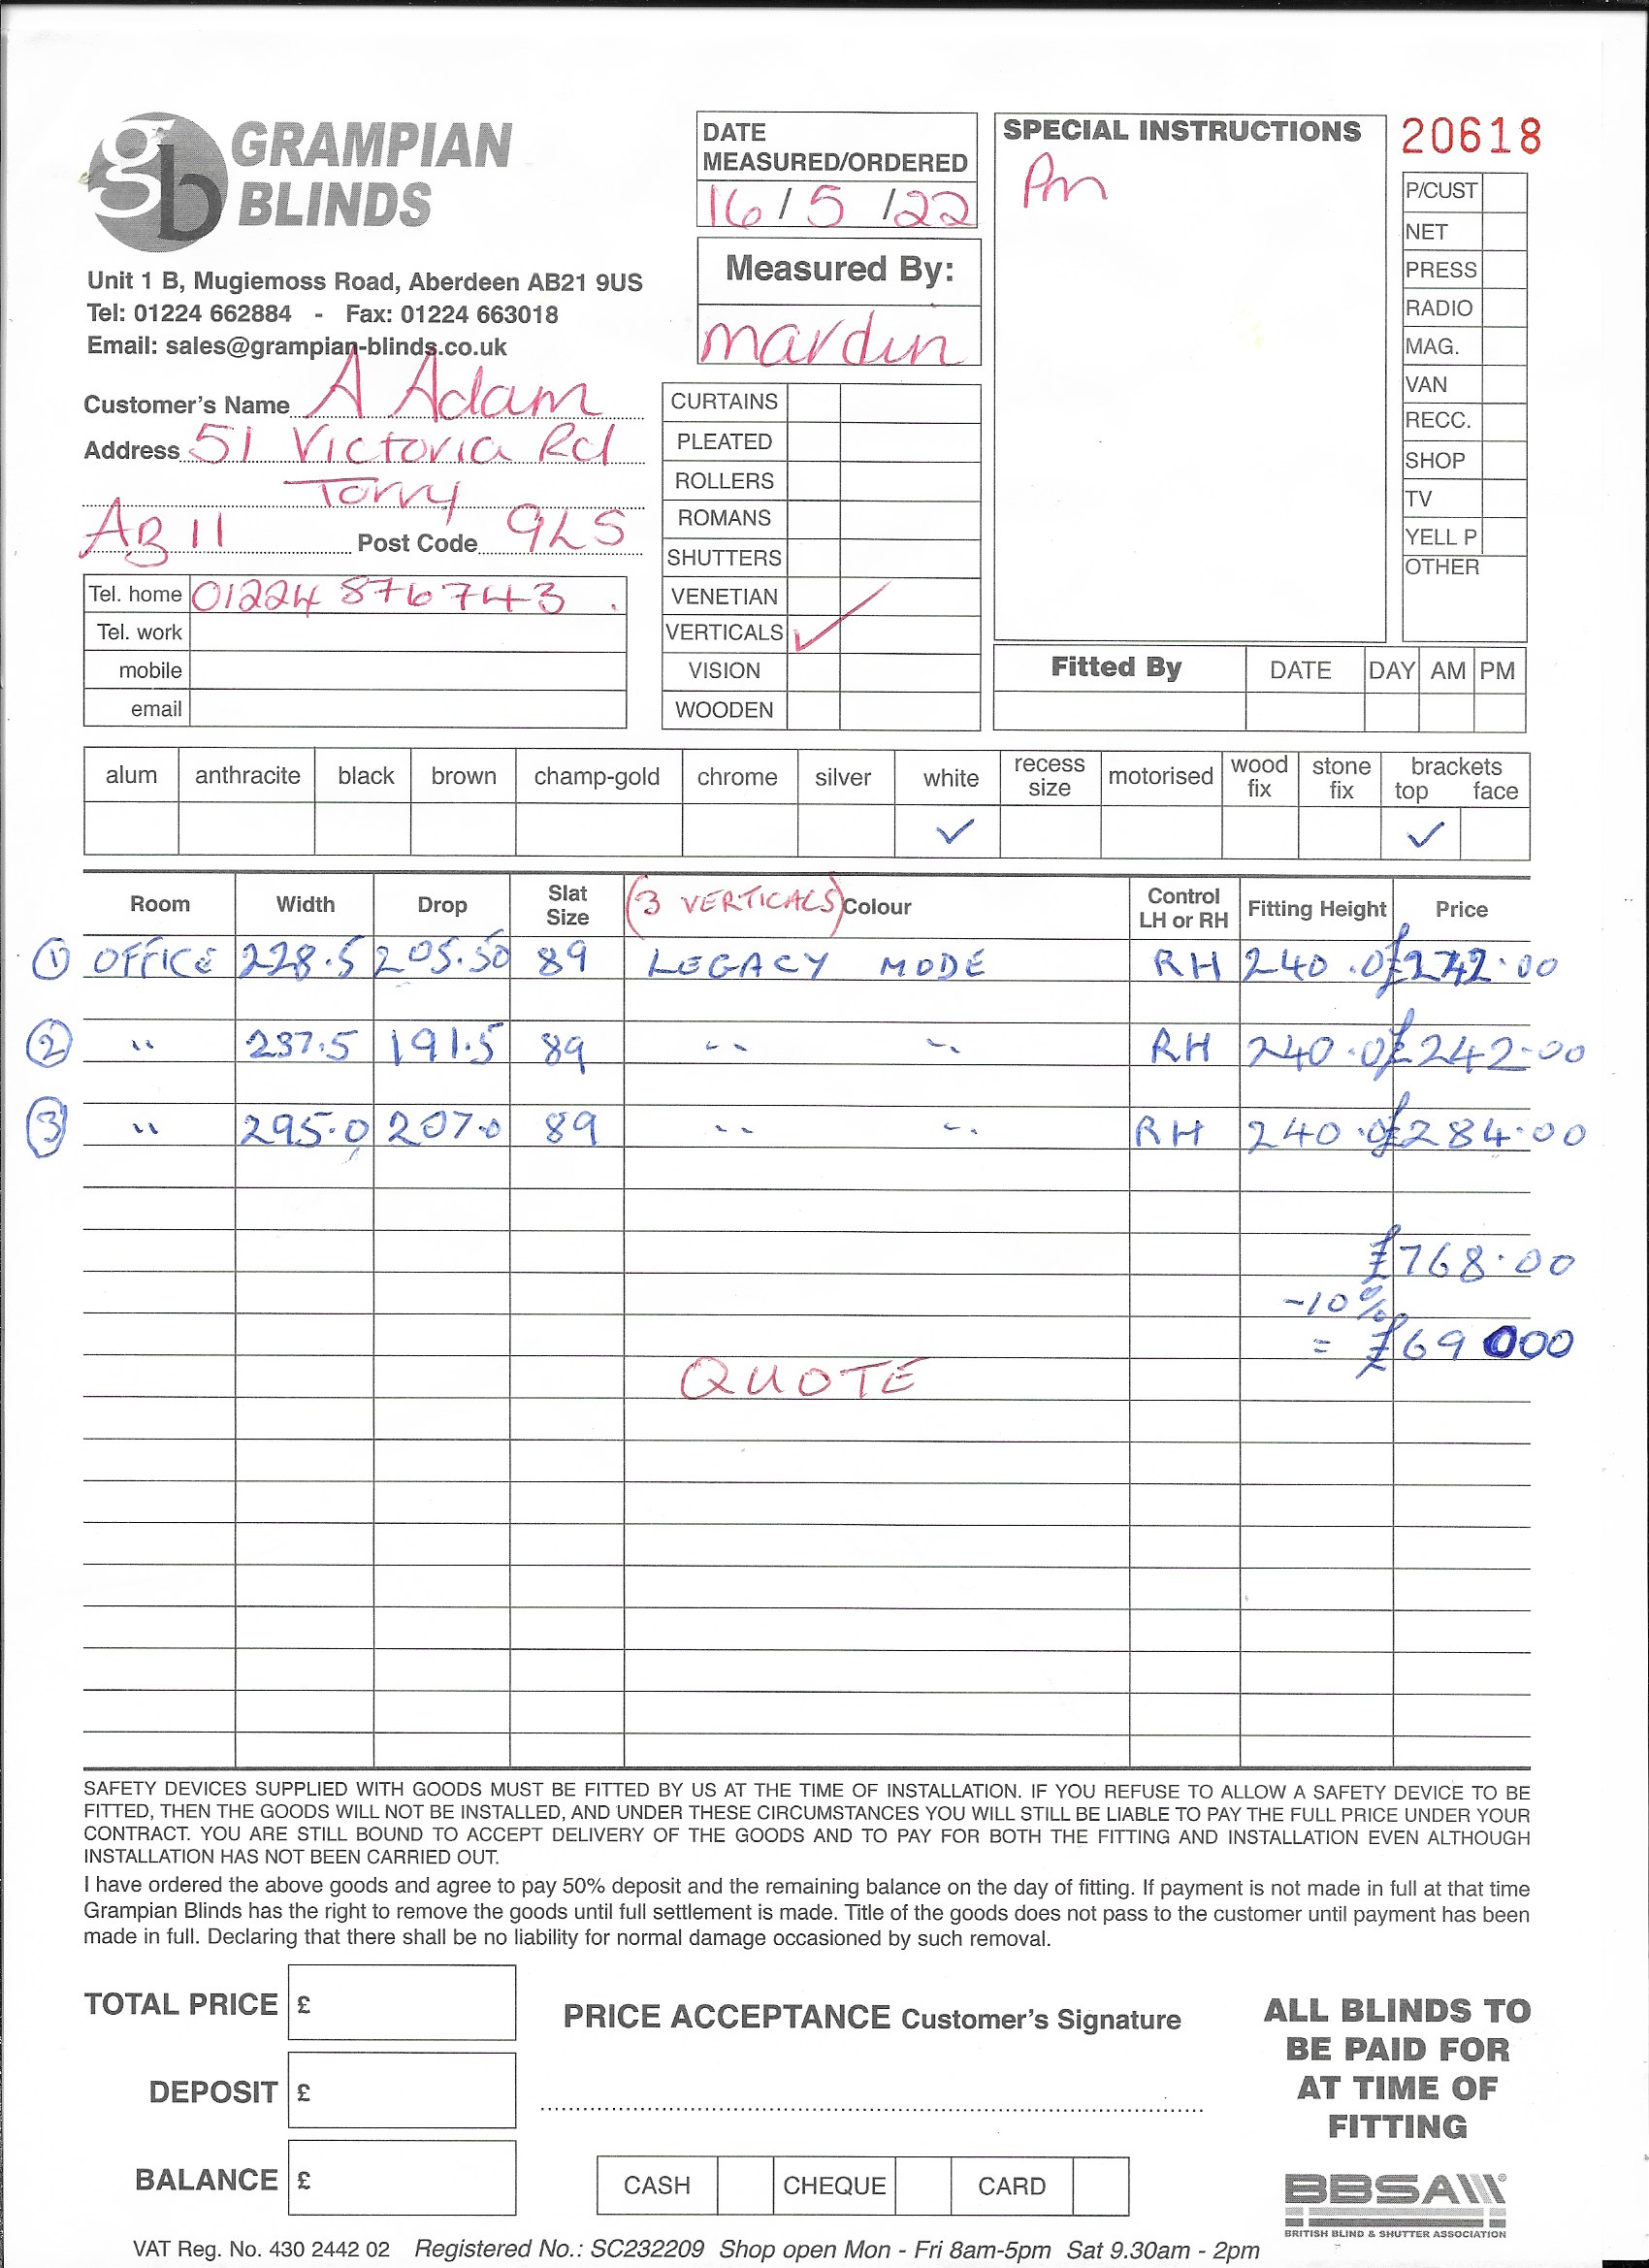 gb GRAMPIAN BLINDS
Unit 1 B, Mugiemoss Road, Aberdeen AB21 9US
Tel: 01224 662884 - Fax: 01224 663018
Email: sales@grampian-blinds.co.uk
Customer's Name A Adam
Address 51 Victoria Rd
Torry
AB11 Post Code 9LS
Tel. home 01224 876743
Tel. work
mobile
email
DATE
MEASURED/ORDERED
16/5/22
Measured By:
CURTAINS
PLEATED
ROLLERS
ROMANS
SHUTTERS
VENETIAN
VERTICALS ✓
VISION
WOODEN
SPECIAL INSTRUCTIONS
Pm
20618
P/CUST
NET
PRESS
RADIO
MAG.
VAN
RECC.
SHOP
TV
YELL P
OTHER
Fitted By DATE DAY AM PM
alum anthracite black brown champ-gold chrome silver white recess size motorised wood fix stone fix brackets top face
✓ ✓
Room Width Drop Slat Size (3 VERTICALS) Colour Control LH or RH Fitting Height Price
① OFFICE 228.5 205.50 89 LEGACY MODE RH 240.0 £242.00
② " 237.5 191.5 89 " " RH 240.0 £242.00
③ " 295.0 207.0 89 " " RH 240.0 £284.00
£768.00
-10%
= £69000
QUOTE
SAFETY DEVICES SUPPLIED WITH GOODS MUST BE FITTED BY US AT THE TIME OF INSTALLATION. IF YOU REFUSE TO ALLOW A SAFETY DEVICE TO BE
FITTED, THEN THE GOODS WILL NOT BE INSTALLED, AND UNDER THESE CIRCUMSTANCES YOU WILL STILL BE LIABLE TO PAY THE FULL PRICE UNDER YOUR
CONTRACT. YOU ARE STILL BOUND TO ACCEPT DELIVERY OF THE GOODS AND TO PAY FOR BOTH THE FITTING AND INSTALLATION EVEN ALTHOUGH
INSTALLATION HAS NOT BEEN CARRIED OUT.
I have ordered the above goods and agree to pay 50% deposit and the remaining balance on the day of fitting. If payment is not made in full at that time
Grampian Blinds has the right to remove the goods until full settlement is made. Title of the goods does not pass to the customer until payment has been
made in full. Declaring that there shall be no liability for normal damage occasioned by such removal.
TOTAL PRICE £
DEPOSIT £
BALANCE £
PRICE ACCEPTANCE Customer's Signature
CASH CHEQUE CARD
ALL BLINDS TO
BE PAID FOR
AT TIME OF
FITTING
BBSA
BRITISH BLIND & SHUTTER ASSOCIATION
VAT Reg. No. 430 2442 02 Registered No.: SC232209 Shop open Mon - Fri 8am-5pm Sat 9.30am - 2pm